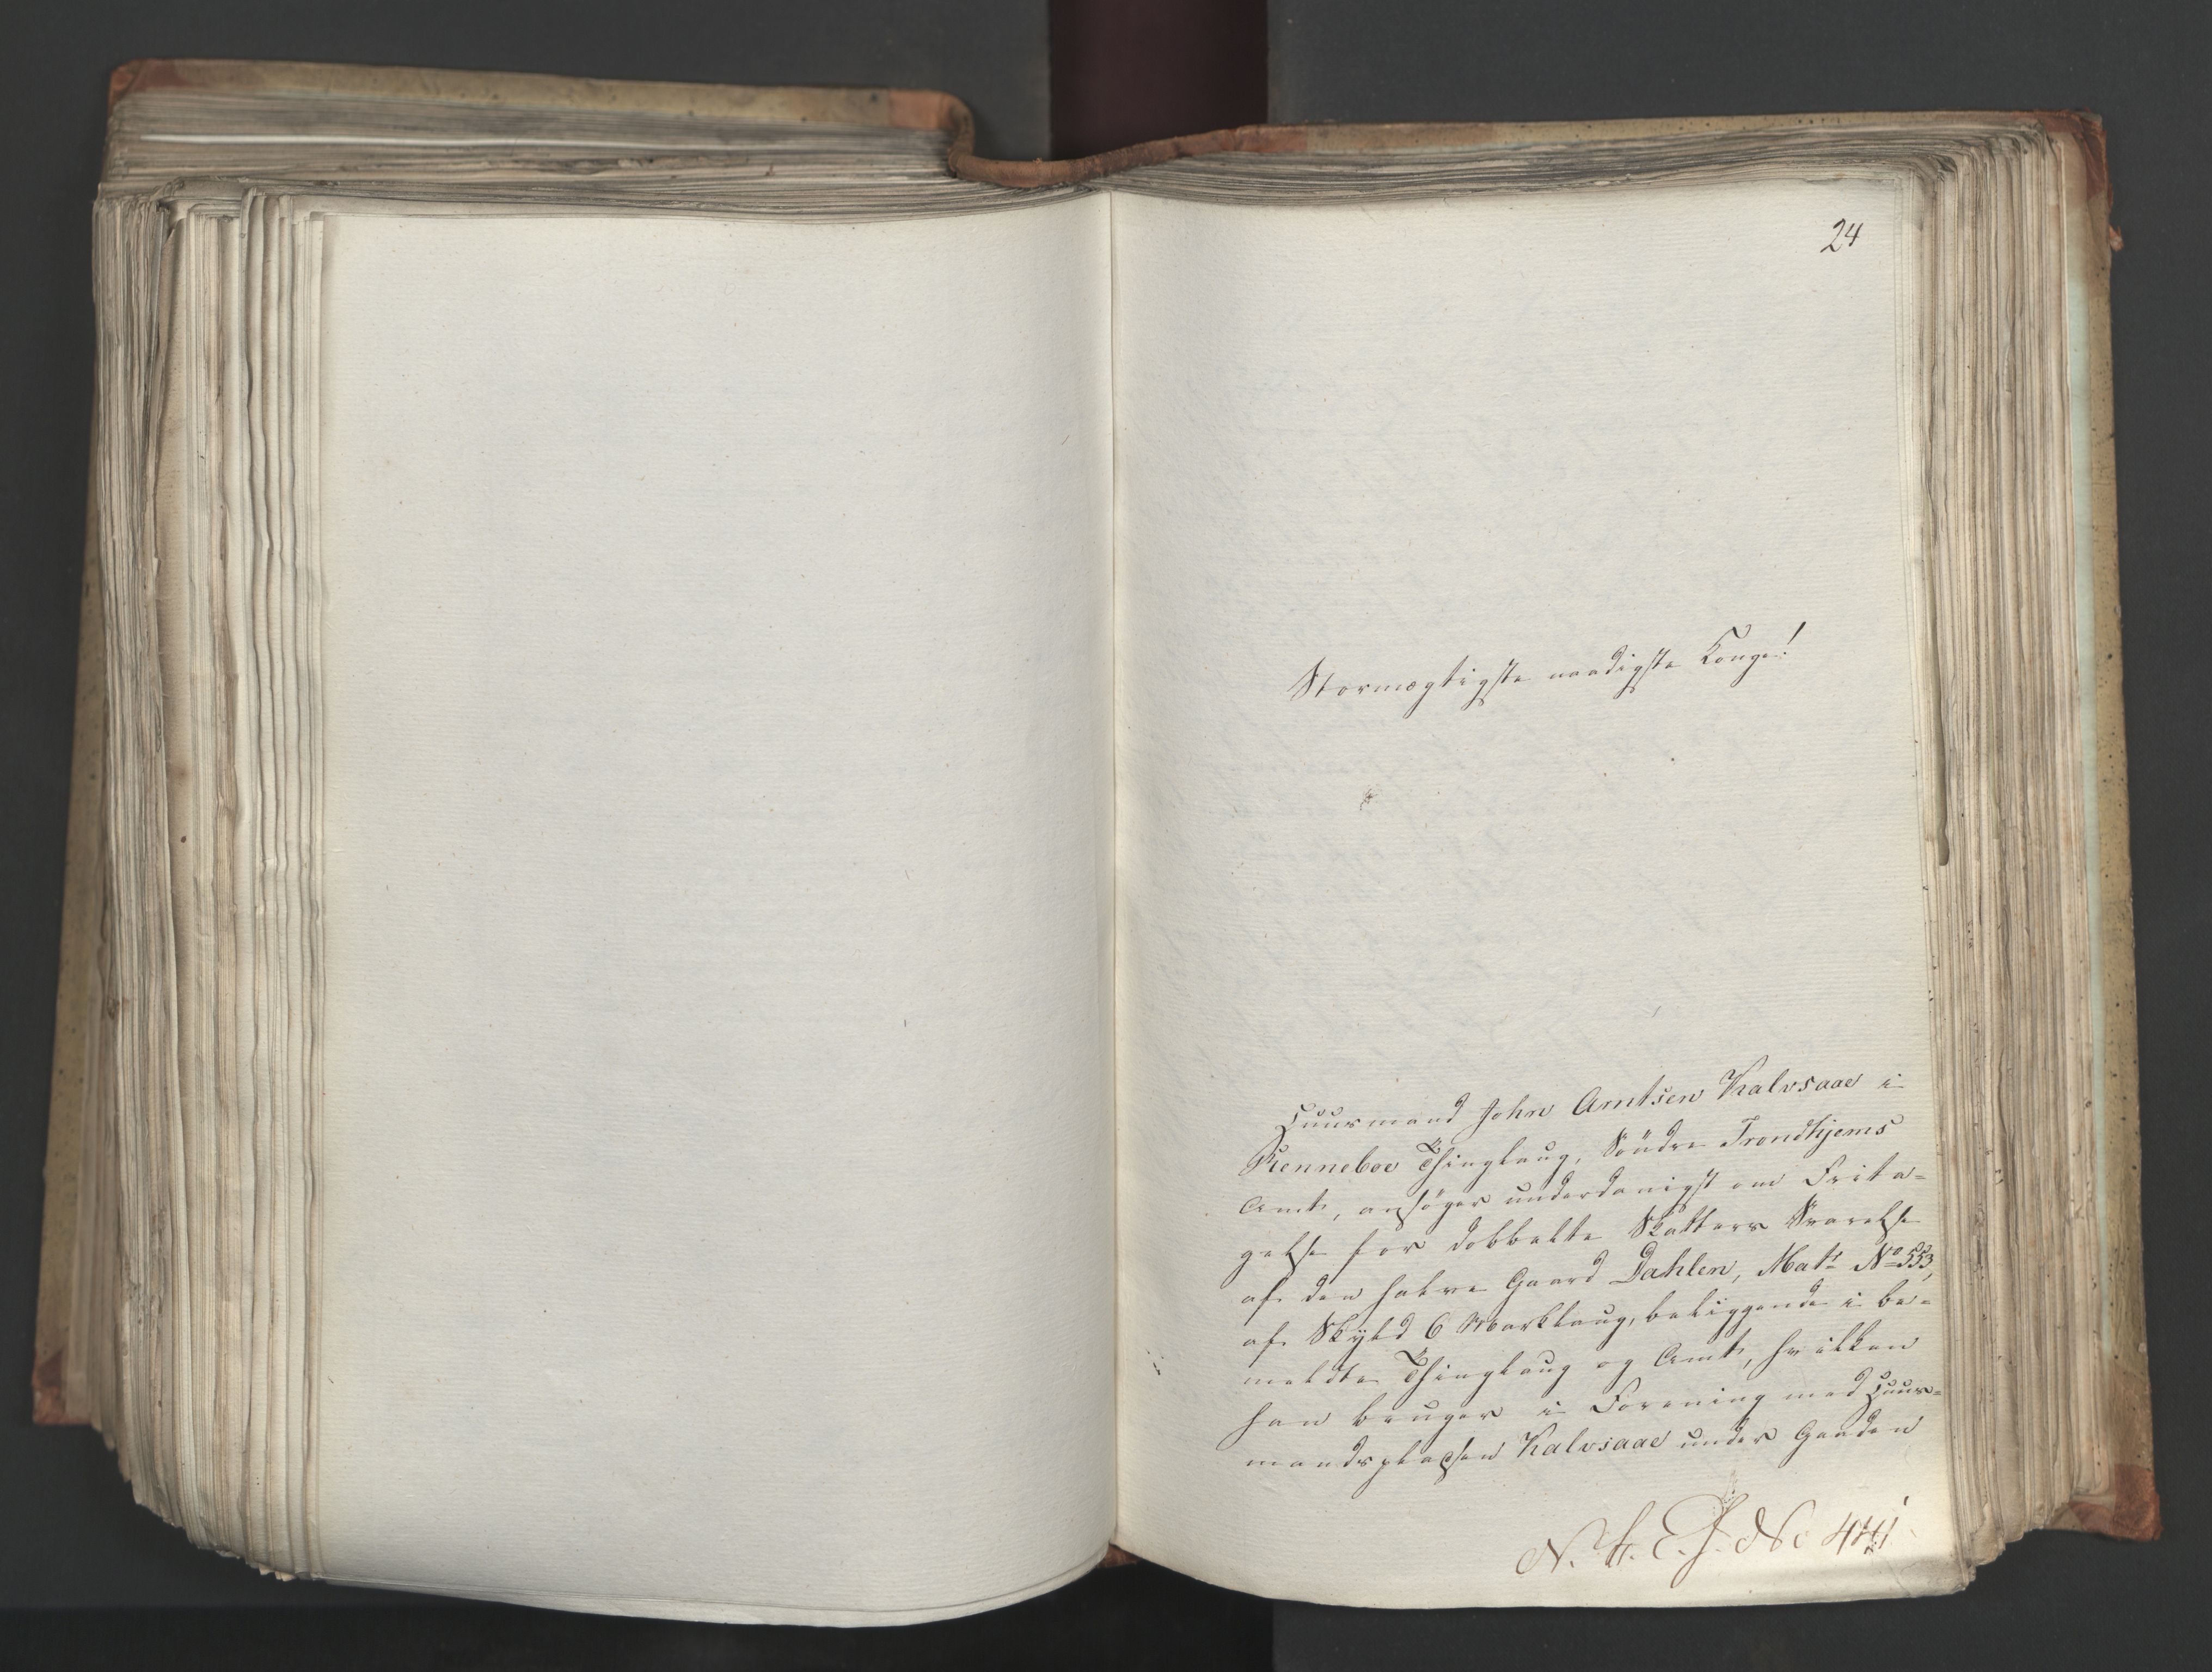 24
Stormægtigste naadigste Konge!
Huusmand John Arntsen Kalvsaae i
Renneboe Thinglaug, Søndre Trondhjems
Amt, ansøger underdanigst om Frita-
gelse for dobbelte Skatters Svarelse
af den halve Gaard Dahlen, Matr No 553,
af Skyld 6 Marklaug, beliggende i be-
meldte Thinglaug og Amt, hvilken
han bruger i Forening med Huus-
mandspladsen Kalvsaae under Gaarden